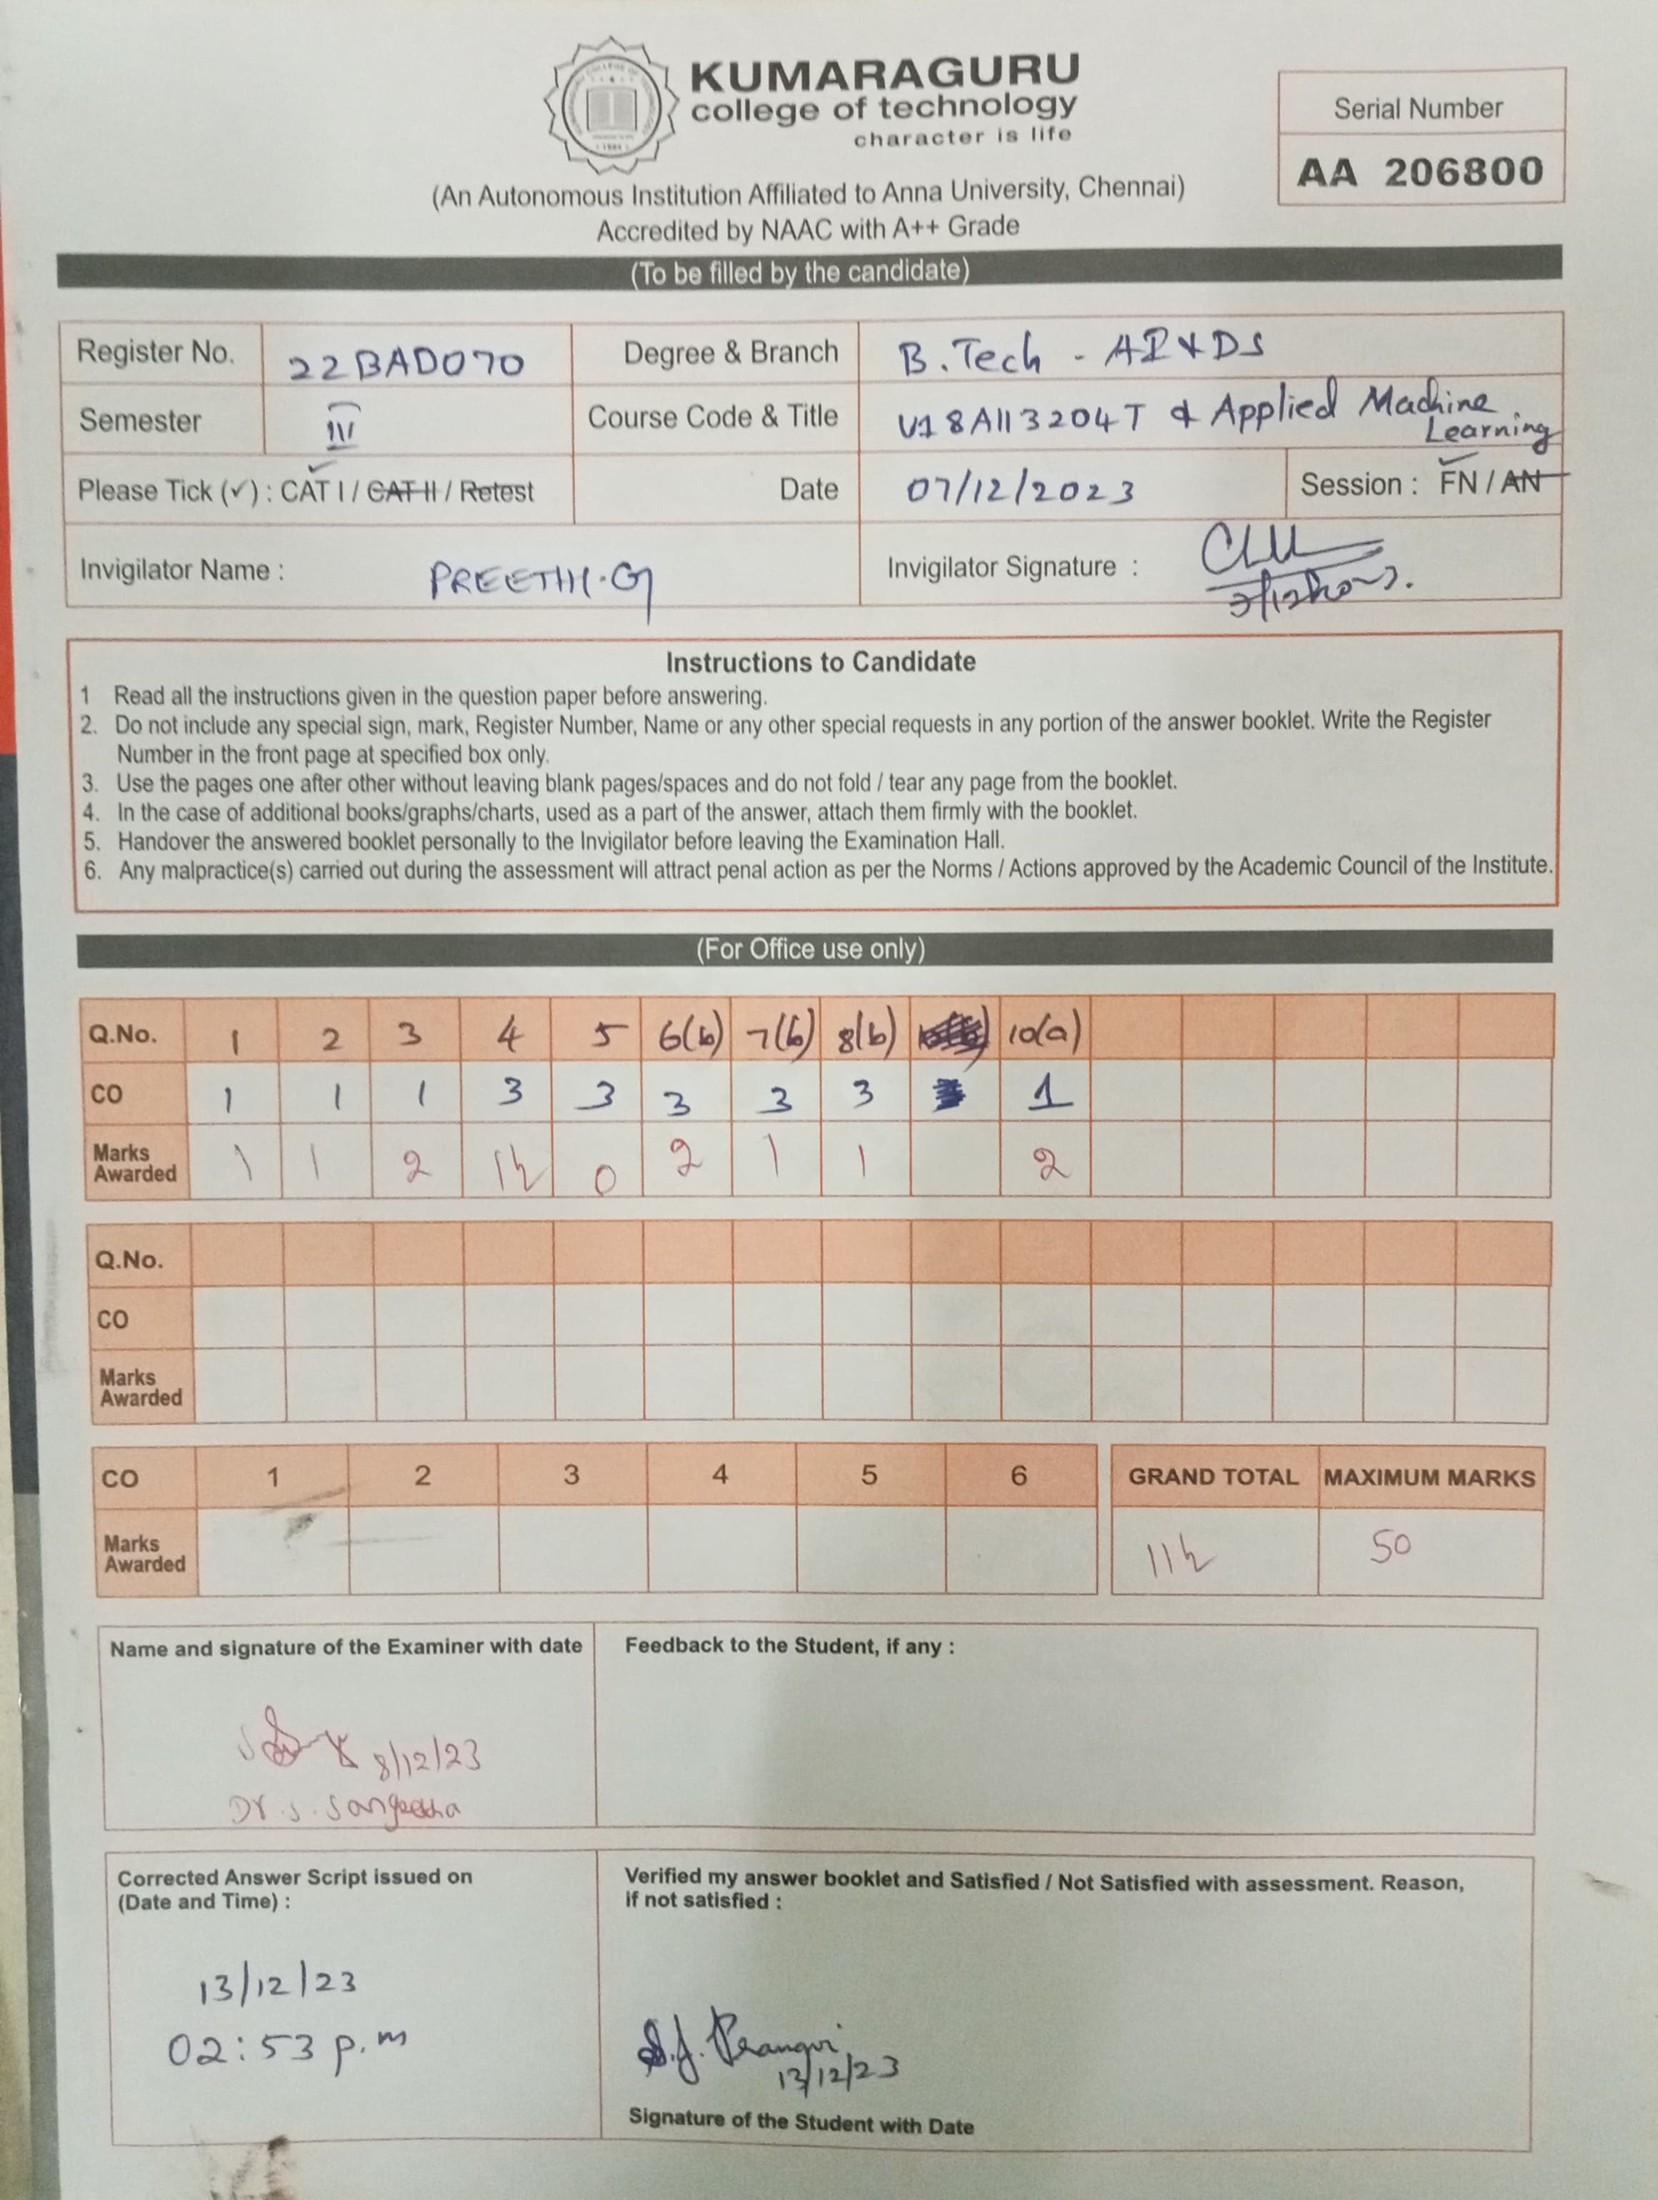 KUMARAGURU
college of technology
character is life
(An Autonomous Institution Affiliated to Anna University, Chennai)
Accredited by NAAC with A++ Grade
Serial Number
AA 206800
(To be filled by the candidate)
Register No. 22BAD070 Degree & Branch B.Tech - AI&DS
Semester III Course Code & Title U18AII3204T & Applied Machine Learning
Please Tick (✓) : CAT I / CAT II / Retest Date 07/12/2023 Session : FN / AN
Invigilator Name : PREETHI.G Invigilator Signature :
Instructions to Candidate
1 Read all the instructions given in the question paper before answering.
2. Do not include any special sign, mark, Register Number, Name or any other special requests in any portion of the answer booklet. Write the Register
Number in the front page at specified box only.
3. Use the pages one after other without leaving blank pages/spaces and do not fold / tear any page from the booklet.
4. In the case of additional books/graphs/charts, used as a part of the answer, attach them firmly with the booklet.
5. Handover the answered booklet personally to the Invigilator before leaving the Examination Hall.
6. Any malpractice(s) carried out during the assessment will attract penal action as per the Norms / Actions approved by the Academic Council of the Institute.
(For Office use only)
Q.No. 1 2 3 4 5 6(b) 7(b) 8(b) 10(a)
CO 1 1 1 3 3 3 3 3 1
Marks Awarded 1 1 2 1½ 0 2 1 1 2
Q.No.
CO
Marks Awarded
CO 1 2 3 4 5 6 GRAND TOTAL MAXIMUM MARKS
Marks Awarded 11½ 50
Name and signature of the Examiner with date
8/12/23
Dr. S. Sangeetha
Feedback to the Student, if any :
Corrected Answer Script issued on
(Date and Time) :
13/12/23
02:53 p.m
Verified my answer booklet and Satisfied / Not Satisfied with assessment. Reason,
if not satisfied :
13/12/23
Signature of the Student with Date